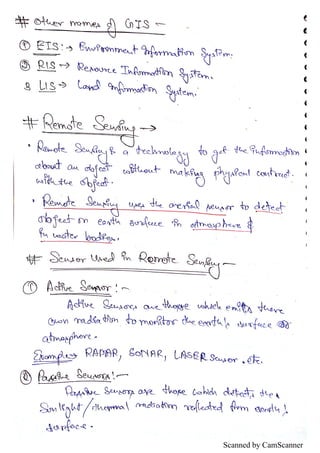 # Other names of GIS –
① EIS: → Environment Information System.
② RIS → Resource Information System.
3 LIS → Land Information System.
# Remote Sensing →
• Remote Sensing is a technology to get the information
about an object without making physical contract.
with the object.
• Remote Sensing uses the aerial sensor to detect
object on earth surface in atmosphere &
in water bodies.
# Sensor Used in Remote Sensing –
① Active Sensor : –
Active Sensors are those which emits there
own radiation to monitor the earth's surface or
atmosphere.
Examples RADAR, SONAR, LASER Sensor . etc.
② Passive Sensors : –
Passive Sensors are those which detects the
Sunlight / thermal radiation reflected from earth's
surface .
Scanned by CamScanner